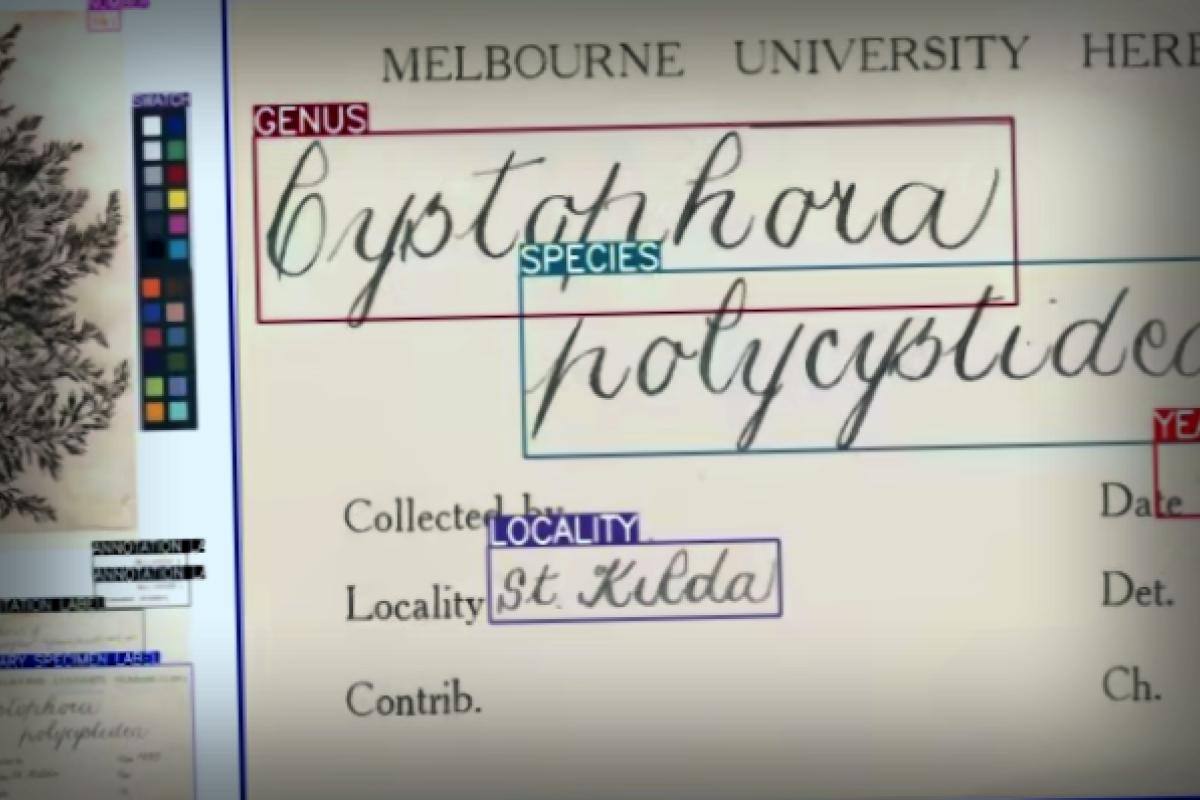 SWATCH
MELBOURNE UNIVERSITY HERB
GENUS
Cystophora
SPECIES
polycystidea
YEA
Collected by
Date
LOCALITY
Locality St. Kilda
Det.
Contrib.
Ch.
ANNOTATION LA
ANNOTATION LA
TATION LABEL
ARY SPECIMEN LABEL
stophora
polycystidea